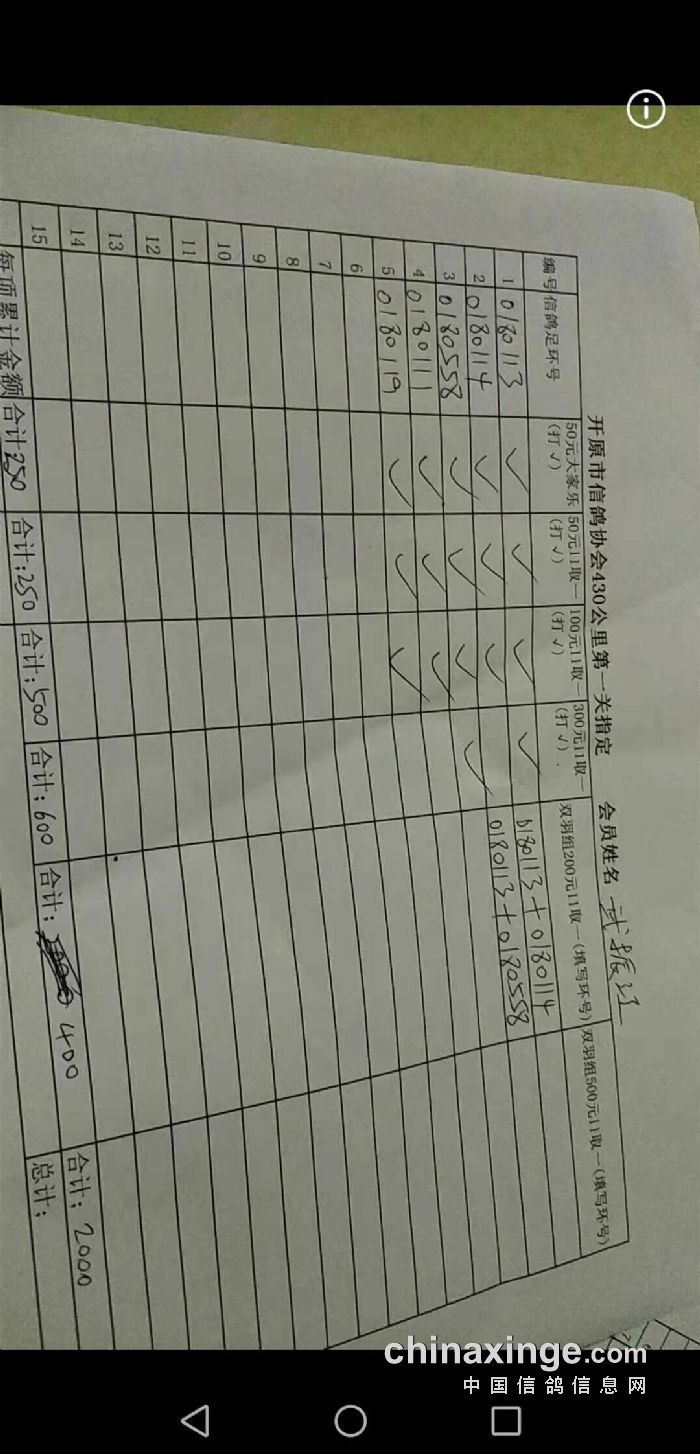 开原市信鸽协会430公里第一关指定 会员姓名
编号 信鸽足环号 50元大家乐(打√) 50元11取一(打√) 100元11取一(打√) 300元11取一(打√). 双羽组200元11取一(填写环号) 双羽组500元11取一(填写环号)
1 0180113 √ √ √ √ 0180113+0180114
2 0180114 √ √ √ 0180113+0180558
3 0180558 √ √ √ √
4 0180111 √ √ √
5 0180119 √ √ √
6
7
8
9
10
11
12
13
14
15
每项累计金额 合计250 合计:250 合计:500 合计:600 合计: 400 合计:2000
总计:
chinaxinge.com
中国信鸽信息网